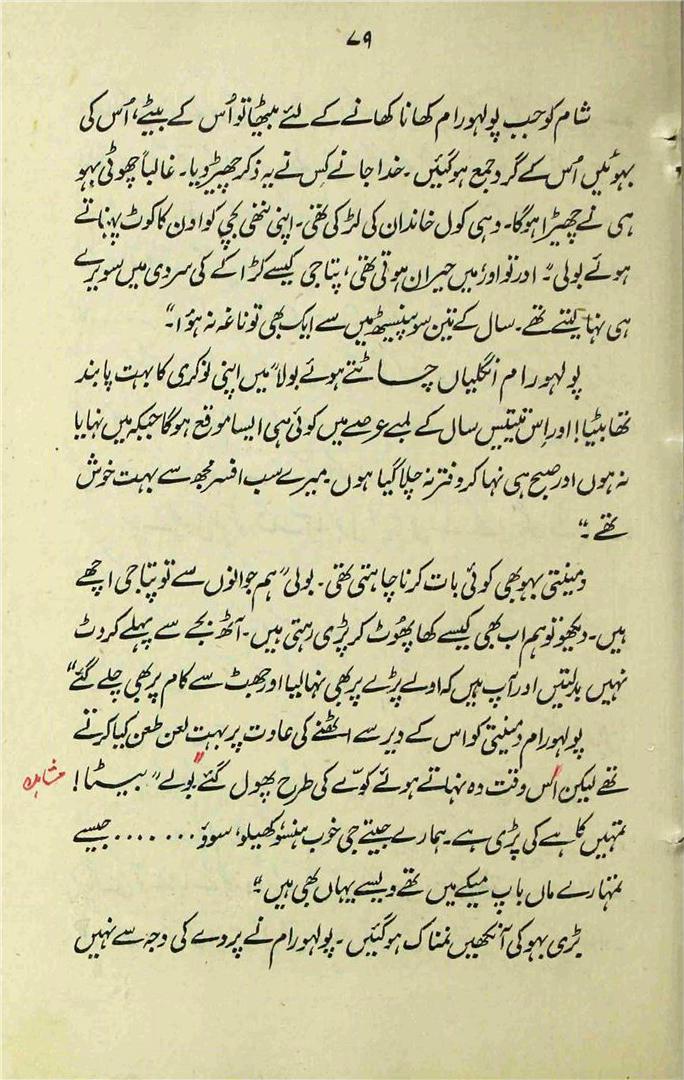 ۷۹
شام کو جب پولہورام کھانا کھانے کے لئے بیٹھا تو اُس کے بیٹے، اُس کی
بہوئیں اُس کے گرد جمع ہو گئیں۔ خدا جانے کس نے یہ ذکر چھیڑ دیا۔ غالباً چھوٹی بہو
ہی نے چھیڑا ہوگا۔ وہی کول خاندان کی لڑکی تھی۔ اپنی ننھی بچی کو اون کا کوٹ پہناتے
ہوئے بولی۔ "اور تو اور میں حیران ہوتی تھی، پتا جی کیسے کڑاکے کی سردی میں سویرے
ہی نہا لیتے تھے۔ سال کے تین سو پینسٹھ میں سے ایک بھی تو ناغہ نہ ہوا"۔
پولہورام انگلیاں چاٹتے ہوئے بولا "میں اپنی نوکری کا بہت پابند
تھا بیٹیا! اور اِس تیتیس سال کے لمبے عرصے میں کوئی ہی ایسا موقع ہوگا جبکہ میں نہایا
نہ ہوں اور صبح ہی نہا کر دفتر نہ چلا گیا ہوں۔ میرے سب افسر مجھ سے بہت خوش
تھے۔"
دمینتی بہو بھی کوئی بات کرنا چاہتی تھی۔ بولی "ہم جوانوں سے تو پتا جی اچھے
ہیں۔ دیکھو تو ہم اب بھی کیسے کھا پھوٹ کر پڑی رہتی ہیں۔ آٹھ بجے سے پہلے کروٹ
نہیں بدلتیں اور آپ ہیں کہ اولے پڑے پر بھی نہا لیا اور جھٹ سے کام پر بھی چلے گئے"
پولہورام دمینتی کو اس کے دیر سے اٹھنے کی عادت پر بہت لعن طعن کیا کرتے
تھے لیکن اُس وقت وہ نہاتے ہوئے کوّے کی طرح پھول گئے "بولے" بیٹا!
تمہیں کاہے کی پڑی ہے۔ ہمارے جیتے جی خوب ہنسو، کھیلو، سوؤ ........ جیسے
تمہارے ماں باپ میکے میں تھے ویسے یہاں بھی ہیں۔"
بڑی بہو کی آنکھیں نمناک ہو گئیں۔ پولہورام نے پردے کی وجہ سے نہیں